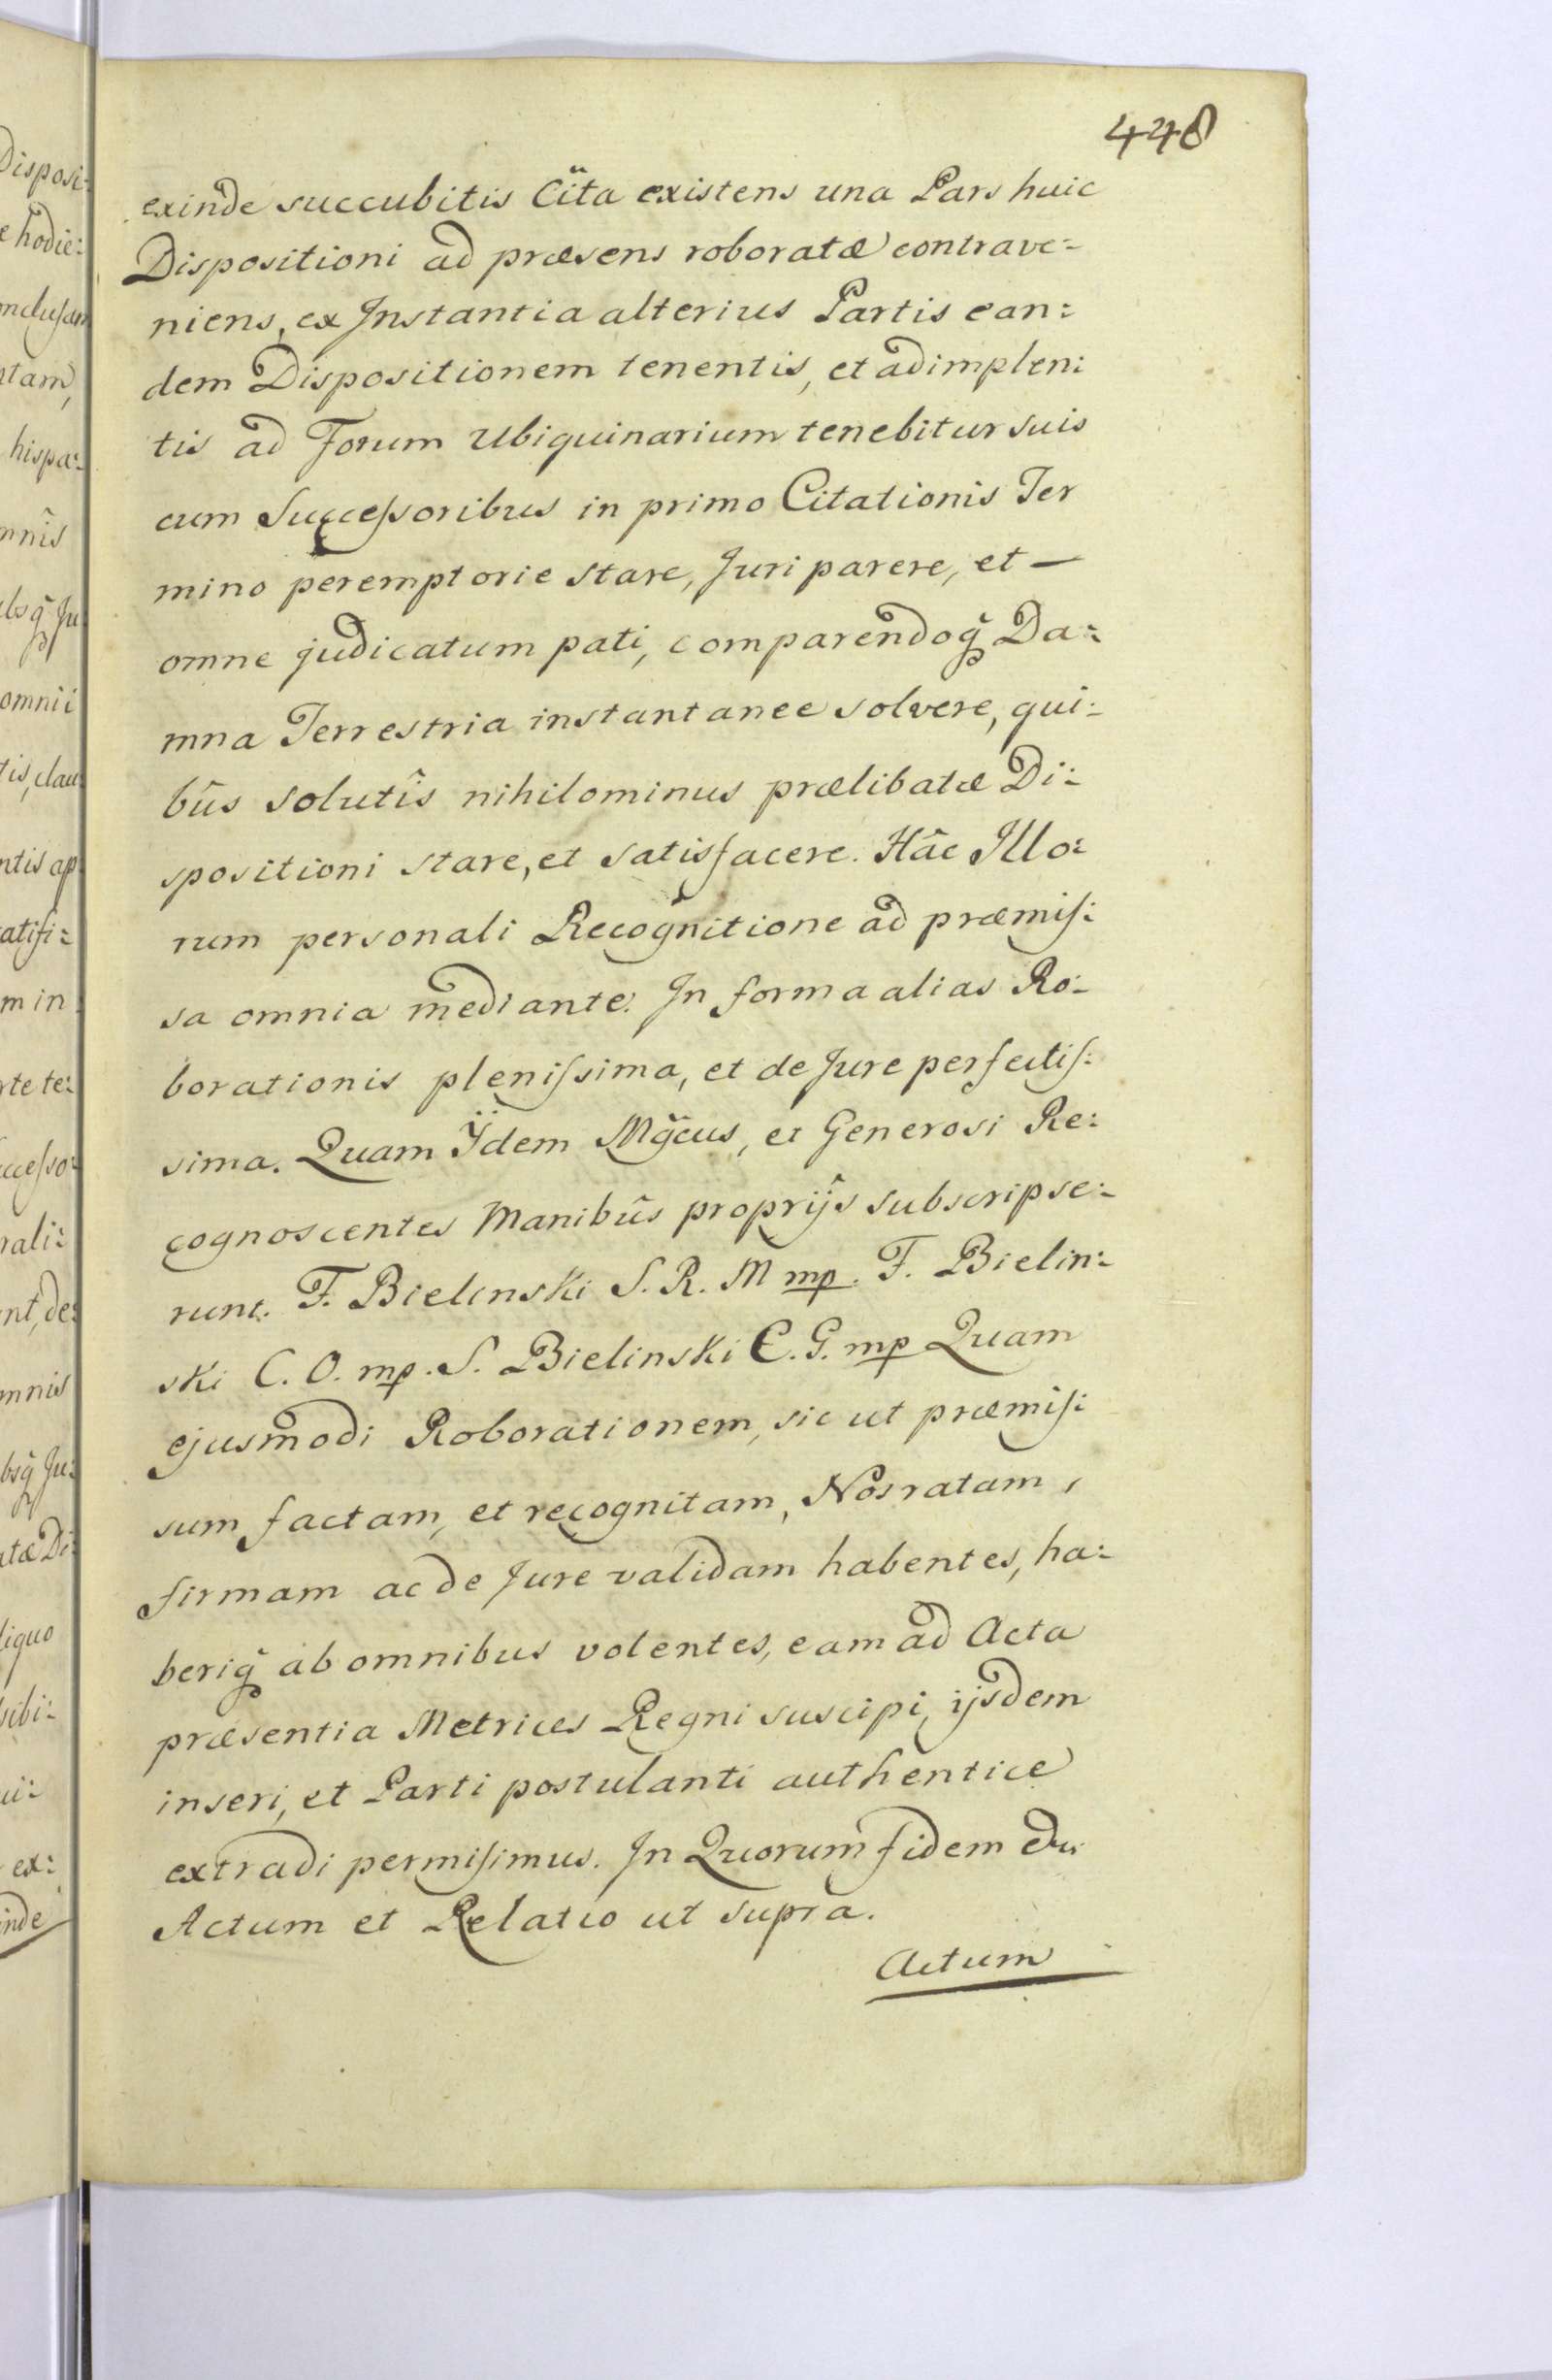 448
exinde succubitis Cïta existens una Pars huic
Dispositioni ad præsens roboratæ contrave=
niens, ex Jnstantia alterius Partis ean:
dem Dispositionem tenentis, et adimplen:
tis ad Forum Ubiquinarium tenebitur suis
cum Successoribus in primo Citationis Ter
mino peremptorie stare, Juri parere, et —
omne judicatum pati, comparendoq̃ Da:
mna Terrestria instantanee solvere, qui:
bûs solutîs nihilominus prælibatæ Di:
spositioni stare, et satisfacere. Hâc Jllo:
rum personali Recognitione ad præmis:
sa omnia mediante. Jn forma alias Ro:
borationis plenissima, et de Jure perfectis:
sima. Quam Ÿdem Mg̃cus, et Generosi Re:
cognoscentes Manibûs proprijs subscripse:
runt. F. Bielinski S. R. M mp. F. Bielin:
ski C. O. mp. S. Bielinski C. G. mp Quam
ejusmodi Roborationem, sic ut præmis:
sum factam, et recognitam, Nos ratam,
firmam ac de Jure validam habentes, ha:
beriq̃ ab omnibus volentes, eam ad Acta
præsentia Metrices Regni suscipi, ijsdem
inseri, et Parti postulanti authentice
extradi permisimus. Jn Quorum fidem
Actum et Relatio ut supra.
Actum
Disposi:
hodie:
tam,
hispa:
mnîs
omnii
tis, clau
ntis ap
atifi:
m in
rte te:
ccesso:
rali:
nt, de:
mnis
bsq̃ Ju:
atæ Di:
liquo
sibi:
ui:
ex:
inde